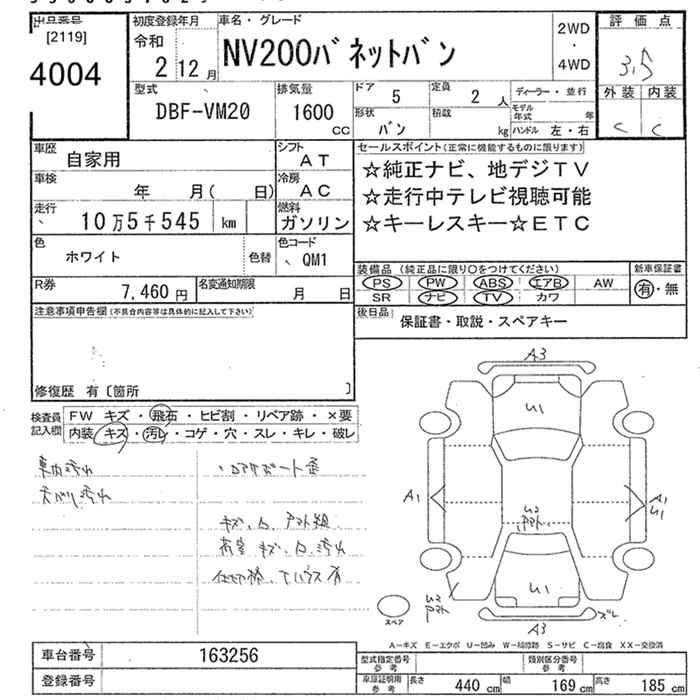 出品番号
[2119]
4004
初度登録年月
令和
2 12 月
車名・グレード
NV200バネットバン
2WD
・
4WD
評価点
3.5
外装 内装
C C
型式
DBF-VM20
排気量
1600
CC
ドア
5
定員
2 人
形状
バン
積載
kg
ディーラー・並行
モデル年式 年
ハンドル 左・右
車歴
自家用
シフト
AT
車検
年 月( 日)
冷房
AC
走行
10万5千545 km
燃料
ガソリン
色
ホワイト
色替
色コード
QM1
R券
7,460 円
名変通知期限
月 日
セールスポイント(正常に機能するものに限ります)
☆純正ナビ、地デジTV
☆走行中テレビ視聴可能
☆キーレスキー☆ETC
装備品 (純正品に限り○をつけてください)
PS PW ABS エアB AW
SR ナビ TV カワ
新車保証書
有・無
後日品
保証書・取説・スペアキー
注意事項申告欄(不具合内容等は具体的に記入して下さい)
修復歴 有〔箇所 〕
検査員
記入欄
FW キズ・飛石・ヒビ割・リペア跡・×要
内装 キズ・汚レ・コゲ・穴・スレ・キレ・破レ
車内汚れ
天バリ汚れ
キズ、凹、アト組
荷室 キズ、凹、汚れ
A3
U1
A1
A1
U1
U2
アト
U1
U2
アト
ズレ
A3
スペア
A-キズ E-エクボ U-凹み W-補修跡 S-サビ C-腐食 XX-交換済
車台番号
163256
登録番号
型式指定番号
参考
類別区分番号
参考
車庫証明用
参考
長さ 440 cm
幅 169 cm
高さ 185 cm